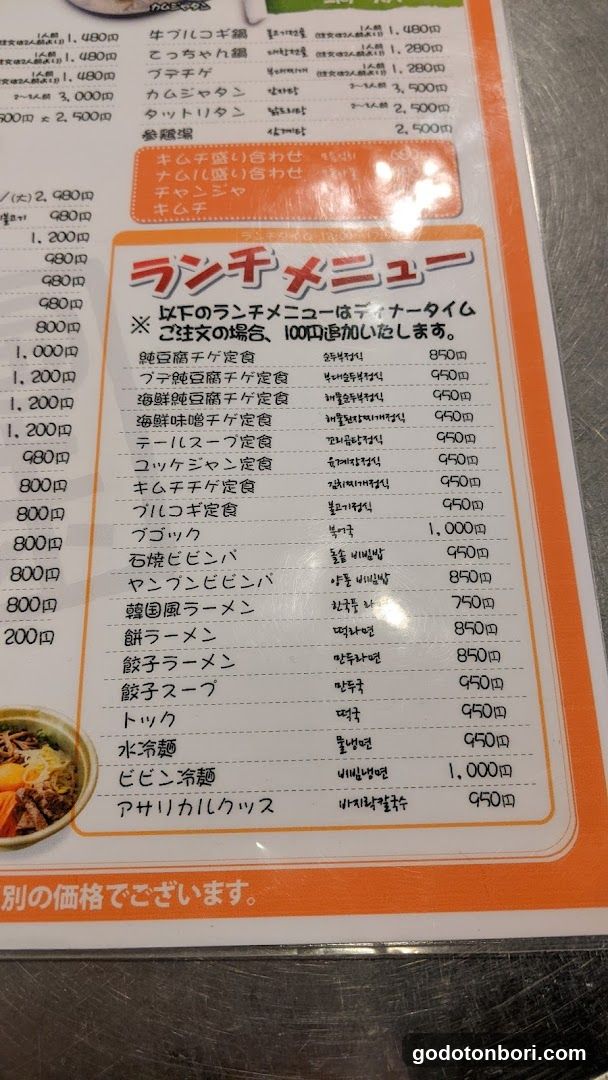 カムジャタン
1人前 1,480円
1人前 1,480円
1,480円
2~3人前 3,000円
大 2,500円
牛プルコギ鍋 불고기전골 1人前(注文は2人前より) 1,480円
てっちゃん鍋 대창전골 1人前(注文は2人前より) 1,280円
プデチゲ 부대찌개 1人前(注文は2人前より) 1,280円
カムジャタン 감자탕 2~3人前 3,500円
タットリタン 닭도리탕 2~3人前 2,500円
参鶏湯 삼계탕 2,500円
キムチ盛り合わせ
ナムル盛り合わせ
チャンジャ
キムチ
/(大)2,980円
불고기 980円
1,200円
980円
980円
980円
800円
1,000円
1,200円
1,200円
1,200円
980円
800円
800円
800円
800円
800円
200円
ランチタイム
ランチメニュー
※ 以下のランチメニューはディナータイム
ご注文の場合、100円追加いたします。
純豆腐チゲ定食 순두부정식 850円
プデ純豆腐チゲ定食 부대순두부정식 950円
海鮮純豆腐チゲ定食 해물순두부정식 950円
海鮮味噌チゲ定食 해물된장찌개정식 950円
テールスープ定食 꼬리곰탕정식 950円
ユッケジャン定食 육계장정식 950円
キムチチゲ定食 김치찌개정식 950円
プルコギ定食 불고기정식 950円
プゴック 북어국 1,000円
石焼ビビンバ 돌솥 비빔밥 950円
ヤンプンビビンバ 양푼 비빔밥 850円
韓国風ラーメン 한국풍 750円
餅ラーメン 떡라면 850円
餃子ラーメン 만두라면 850円
餃子スープ 만두국 950円
トック 떡국 950円
水冷麺 물냉면 950円
ビビン冷麺 비빔냉면 1,000円
アサリカルクッス 바지락칼국수 950円
別の価格でございます。
godotonbori.com